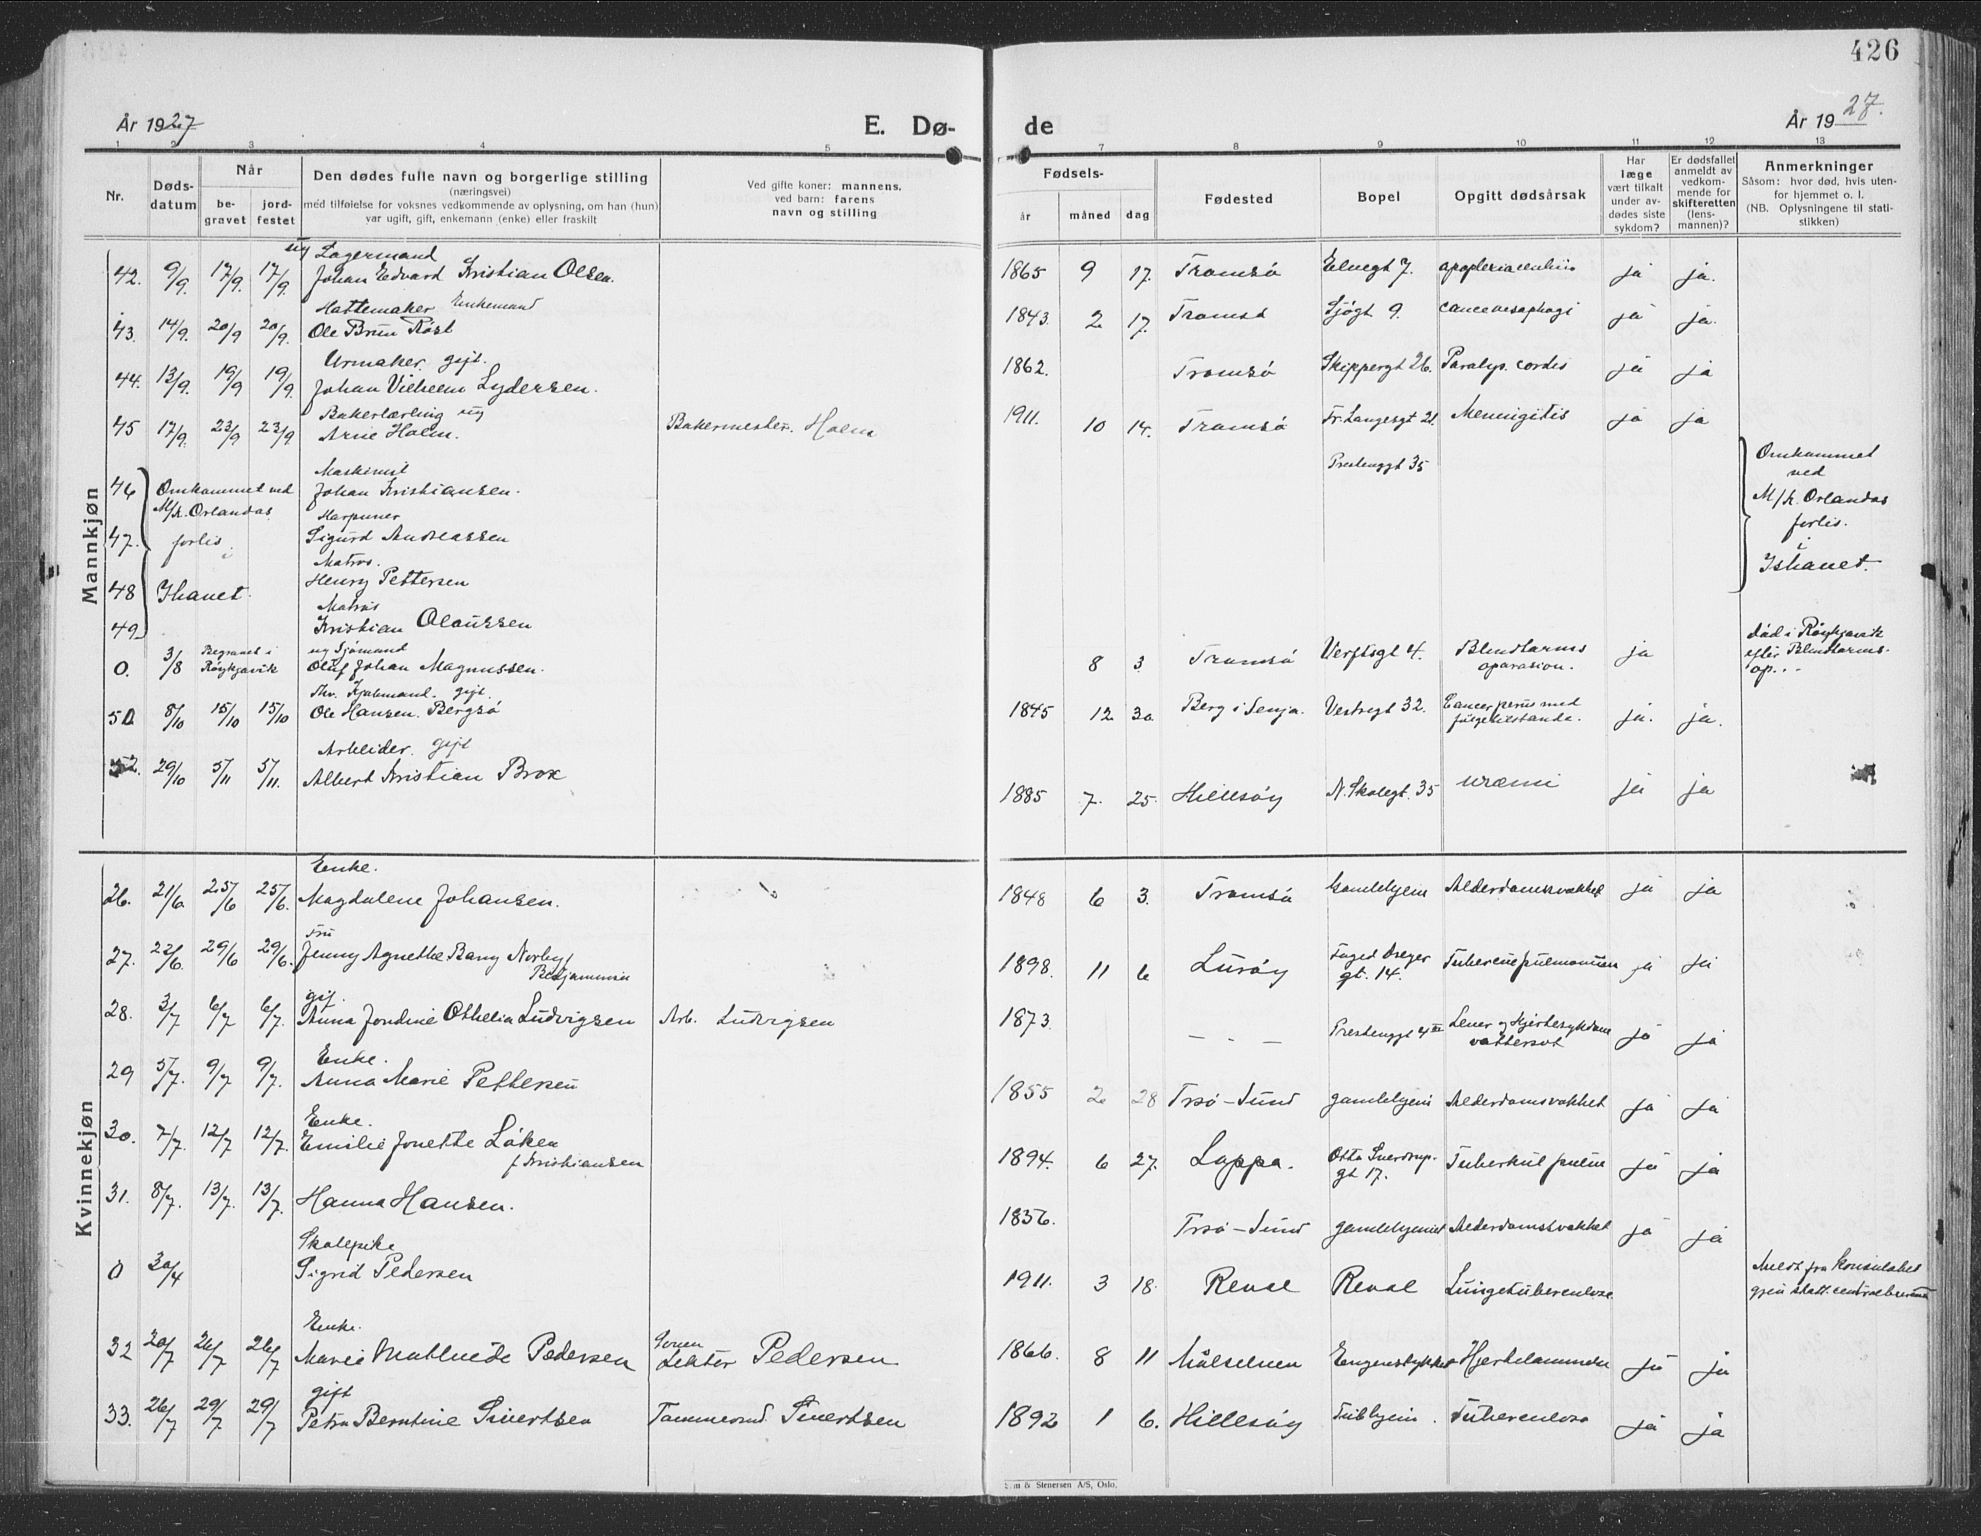 426
År 1927
E. Dø-
de
År 1927.
1 2 3 4 5 7 8 9 10 11 12 13
Nr.
Døds-
datum
Når
be-
gravet
jord-
festet
Den dødes fulle navn og borgerlige stilling
(næringsvei)
med tilføielse for voksnes vedkommende av oplysning, om han (hun)
var ugift, gift, enkemann (enke) eller fraskilt
Ved gifte koner: mannens,
ved barn: farens
navn og stilling
Fødsels-
år måned dag
Fødested
Bopel
Opgitt dødsårsak
Har
læge
vært tilkalt
under av-
dødes siste
sykdom?
Er dødsfallet
anmeldt av
vedkom-
mende for
skifteretten
(lens-
mannen)?
Anmerkninger
Såsom: hvor død, hvis uten-
for hjemmet o. l.
(NB. Oplysningene til stati-
stikken)
Mannkjøn
ug Lagermand
42. 9/9. 17/9. 17/9. Johan Edvard Kristian Olsen. 1865 9 17. Tromsø Elvegt 7. ja ja.
Hattemaker Enkemand
43. 14/9. 20/9 20/9. Ole Brun Røst 1843. 2 17. Tromsø Sjøgt 9. ja ja.
Urmaker. gift.
44. 13/9. 19/9 19/9. Johan Vilhelm Lydersen. 1862. Tromsø Skippergt 26. Paralys. cordis ja ja
Bakerlærling ug
45 17/9. 23/9 23/9. Arne Holm. Bakermester. Holm 1911. 10 14. Tromsø Fr. Langesgt 21. Mennigitis ja ja
Maskinist
46 Omkommet ved Johan Kristiansen. Prestenggt 35 Omkommet
ved
M/k. Orlandos
forlis.
i
Ishavet.
M/k. Orlandos Harpuner
47. forlis Sigurd Andreassen
i Matros.
48 Ishavet. Henry Pettersen
Matros
49 Kristian Olaussen
ug Sjømand
0. 3/8 Begravet i Røykjavik Oluf Johan Magnussen. 8 3 Tromsø Verftsgt 4. Blindtarms
oparasion. ja død i Røykjavik
efter Blindtarms-
op...
fhv. gift.
50 8/10 15/10 15/10 Ole Hansen. Bergsø 1845 12 30 Berg i Senja. Vestregt 32. Cancer penis med
følgetilstande. ja. ja.
Arbeider. gift
52. 29/10 5/11 5/11. Albert Kristian Brox 1885 7. 25. Hillesøy N. Skolegt. 35 uræmi ja ja
Kvinnekjøn
Enke.
26. 21/6 25/6 25/6. Magdalene Johansen. 1848 6 3. Tromsø Gamlehjem Alderdomssvakhet ja ja
Fru
27. 22/6. 29/6 29/6. Jenny Agnethe Bang Norby,
Benjaminsen 1898. 11 6 Lurøy
gt. 14. ja ja
gif.
28. 3/7 6/7 6/7. Anna Jordine Othelia Ludvigsen Arb. Ludvigsen 1873. — . — Prestenggt 4 III Lever og Hjertesykdom
vattersot ja ja
Enke.
29 5/7. 9/7 9/7. Anna Marie Pettersen 1855 2 28 Trsø-Sund gamlehjem Alderdomsvakhet ja ja
Enke.
30. 7/7. 12/7 12/7. Emilie Jonette Løken
f. Kristiansen 1894. 6 27. Loppa. Otto Sverdrup.
gt 17. ja ja
31. 8/7. 13/7. 13/7. Hanna Hansen. 1836. Trsø-Sund gamlehjemmet Alderdomssvakhet ja ja
Skolepike
0 30/4 Sigrid Pedersen 1911. 3 18. Reval Reval Lungetuberculose Meldt fra Konsulatet
gjen. statt. centralbureau
Enke.
32 20/7 26/7 26/7 Marie Pedersen Lektor Pedersen 1866. 8 11 Målselven ja ja
gift
33. 26/7 29/7. 29/7 Petra Berntine Sivertsen Tømmermd. Sivertsen 1892 1 6. Hillesøy Tubhjem. Tuberculose ja ja
& Stenersen A/S, Oslo.